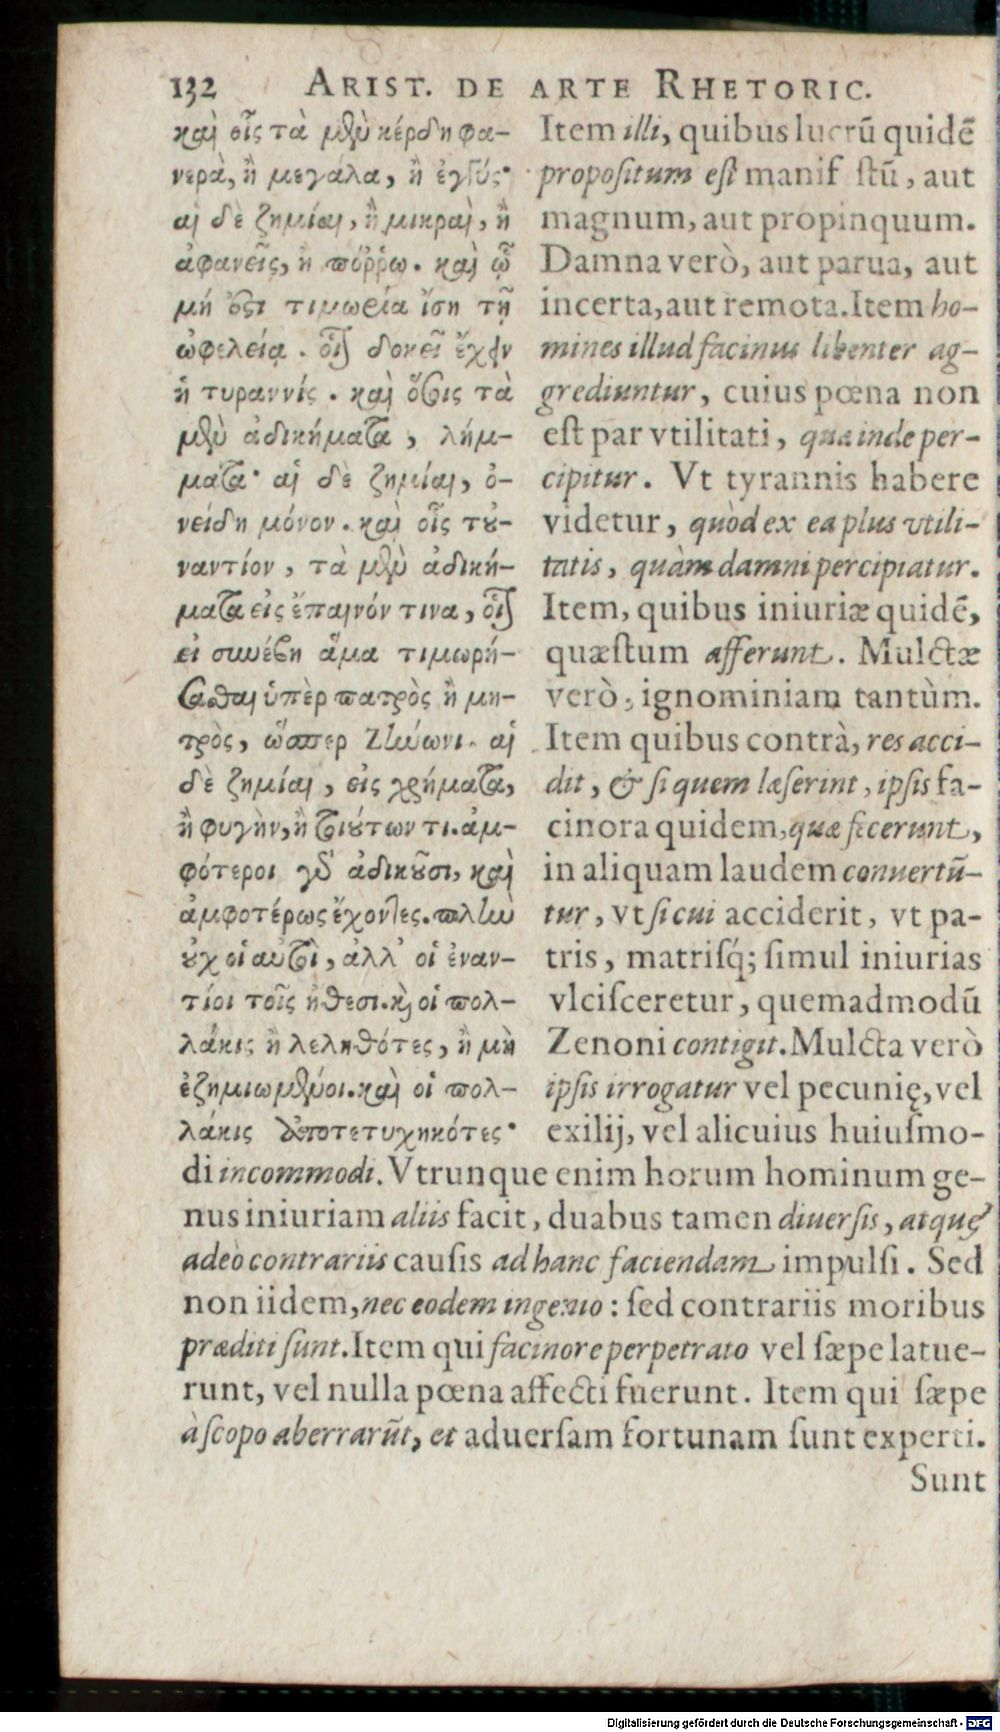 132 ARIST. DE ARTE RHETORIC.
καὶ οἷς τὰ μὲν κέρδη φα-
νερὰ, ἢ μεγάλα, ἢ ἐγγύς·
αἱ δὲ ζημίαι, ἢ μικραὶ, ἢ
ἀφανεῖς, ἢ πόῤῥω. καὶ ᾧ
μή ἐστι τιμωρία ἴση τῇ
ὠφελείᾳ. οἷον δοκεῖ ἔχειν
ἡ τυραννίς. καὶ ὅσοις τὰ
μὲν ἀδικήματα, λήμ-
ματα· αἱ δὲ ζημίαι, ὀ-
νείδη μόνον. καὶ οἷς τοὐ-
ναντίον, τὰ μὲν ἀδική-
ματα εἰς ἔπαινόν τινα, οἷον
εἰ συνέβη ἅμα τιμωρή-
σασθαι ὑπὲρ πατρὸς ἢ μη-
τρὸς, ὥσπερ Ζήνωνι. αἱ
δὲ ζημίαι, εἰς χρήματα,
ἢ φυγὴν, ἢ τοιούτων τι. ἀμ-
φότεροι γὰρ ἀδικοῦσι, καὶ
ἀμφοτέρως ἔχοντες. πλὴν
οὐχ οἱ αὐτοὶ, ἀλλ’ οἱ ἐναν-
τίοι τοῖς ἤθεσι. καὶ οἱ πολ-
λάκις ἢ λεληθότες, ἢ μὴ
ἐζημιωμένοι. καὶ οἱ πολ-
λάκις ἀποτετυχηκότες·
Item illi, quibus lucrū quidē
propoſitum eſt manifeſtū, aut
magnum, aut propinquum.
Damna verò, aut parua, aut
incerta, aut remota. Item ho-
mines illud facinus libenter ag-
grediuntur, cuius pœna non
eſt par vtilitati, qua inde per-
cipitur. Vt tyrannis habere
videtur, quòd ex ea plus vtili-
tatis, quàm damni percipiatur.
Item, quibus iniuriæ quidē,
quæſtum afferunt. Mulctæ
verò, ignominiam tantùm.
Item quibus contrà, res acci-
dit, & ſi quem læſerint, ipſis fa-
cinora quidem, quæ fecerunt,
in aliquam laudem conuertū-
tur, vt ſi cui acciderit, vt pa-
tris, matriſq́; ſimul iniurias
vlciſceretur, quemadmodū
Zenoni contigit. Mulcta verò
ipſis irrogatur vel pecunię, vel
exilij, vel alicuius huiuſmo-
di incommodi. Vtrunque enim horum hominum ge-
nus iniuriam aliis facit, duabus tamen diuerſis, atque
adeò contrariis cauſis ad hanc faciendam impulſi. Sed
non iidem, nec eodem ingenio: ſed contrariis moribus
præditi ſunt. Item qui facinore perpetrato vel ſæpe latue-
runt, vel nulla pœna affecti fuerunt. Item qui ſæpe
à ſcopo aberrarūt, et aduerſam fortunam ſunt experti.
Sunt
Digitalisierung gefördert durch die Deutsche Forschungsgemeinschaft - DFG